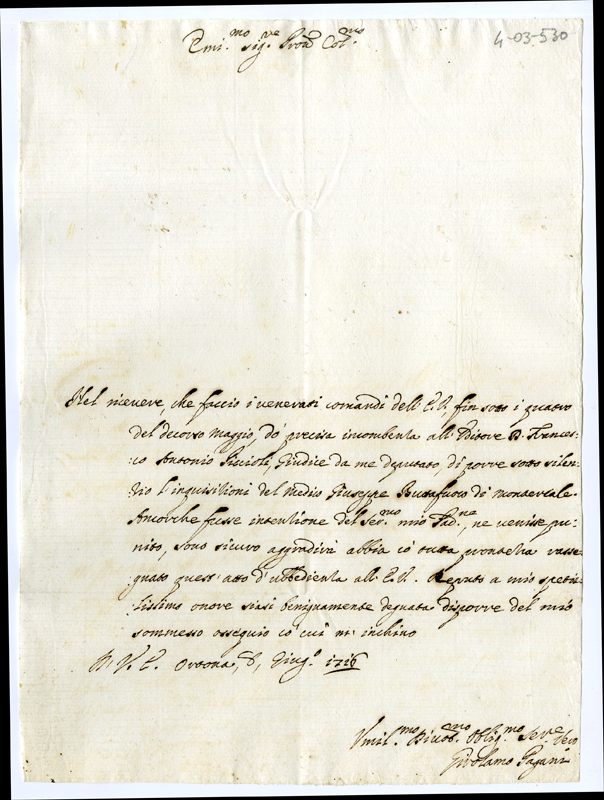 4-03-530
Emi.mo sig.re Pron Col.mo
Nel ricevere, che faccio i venerati comandi dell'E.V. fin sotto i quatro
del decorso Maggio, dò precisa incombenza all'Uditore D. Frances-
:co Antonio Piccioli Giudice da me deputato, di porre sotto silen-
:zio l'inquisitioni del Medico Giuseppe Buttafuoco di monsereale.
Ancorche fusse intentione del Ser.mo mio Pad.ne, ne venisse pu-
:nito, sono sicuro aggradirà abbia cò tutta prontezza rasse-
gnato quest'atto d'ubbedienza all'E.V. Reputo a mio spetia-
:lissimo onore siasi benignamente degnata disporre del mio
sommesso ossequio cò cui m'inchino
D. V. E. Ortona, 8, Giug.o 1716
Vmil.mo Divot.mo Oblig.mo Ser.re Vero
Girolamo Pagani